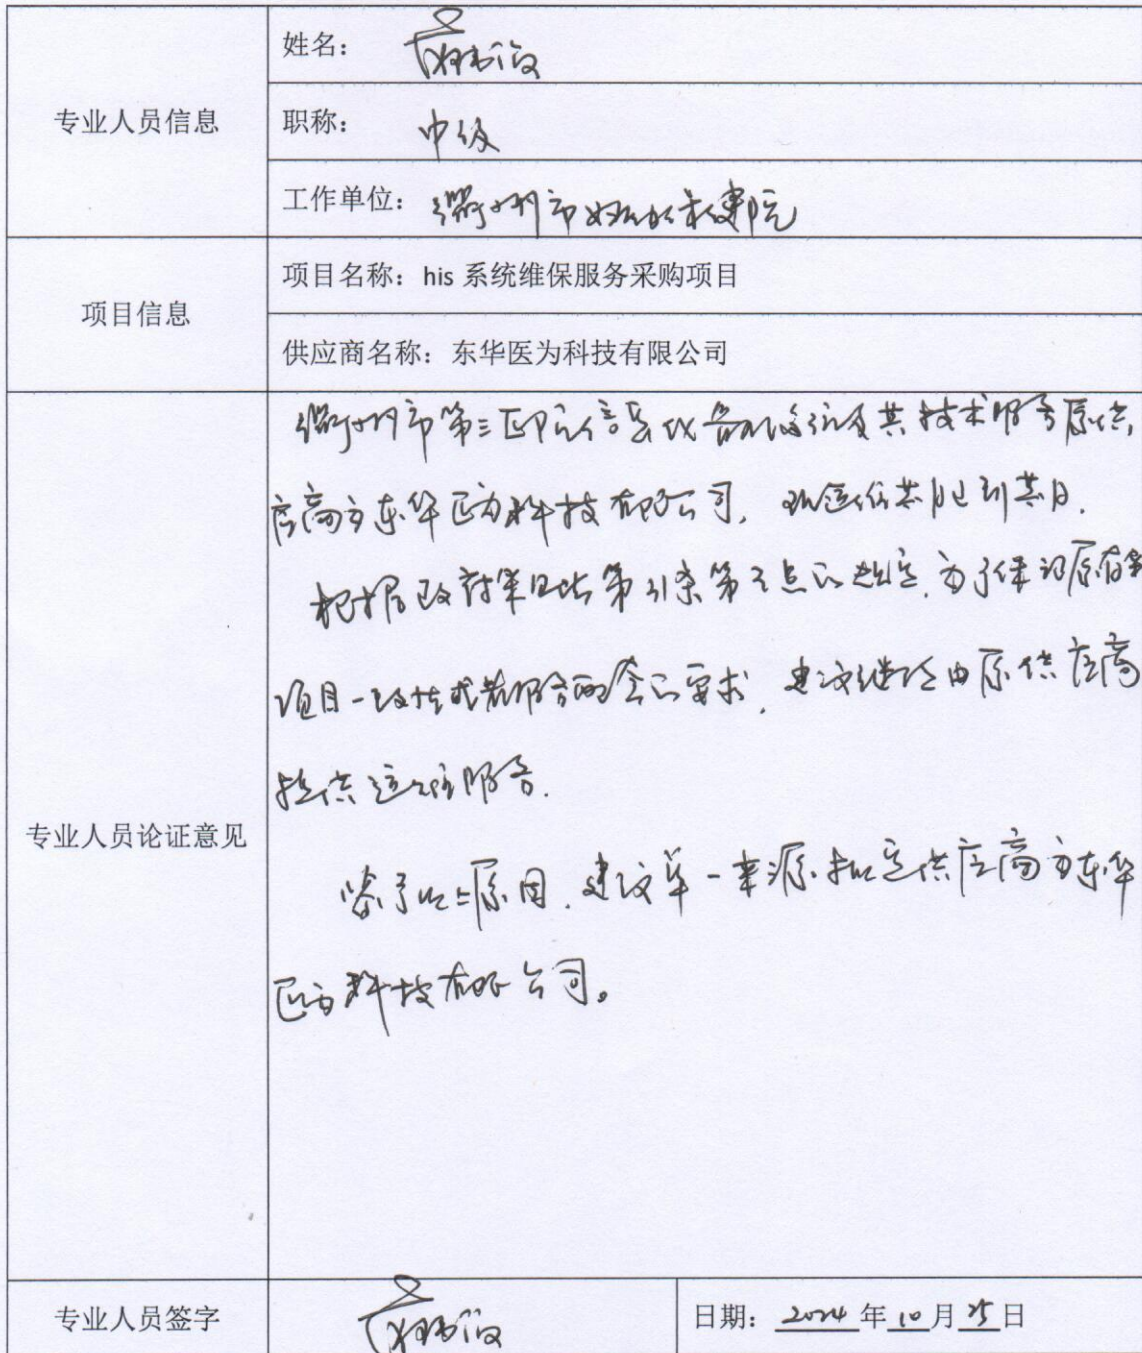 姓名：
专业人员信息
职称： 中级
工作单位： 衢州市妇幼保健院
项目信息
项目名称：his 系统维保服务采购项目
供应商名称：东华医为科技有限公司
专业人员论证意见
衢州市第三医院信息化 系统及其技术服务原供
应商为东华医为科技有限公司，现 期已到期。
根据政府采购法第31条第3点的规定，为了保证原有采
项目一致性或者服务配套的要求，建议继续由原供应商
提供 服务。
以上原因，建议单一来源 定供应商为东华
医为科技有限公司。
专业人员签字
日期： 2024 年 10 月 25 日